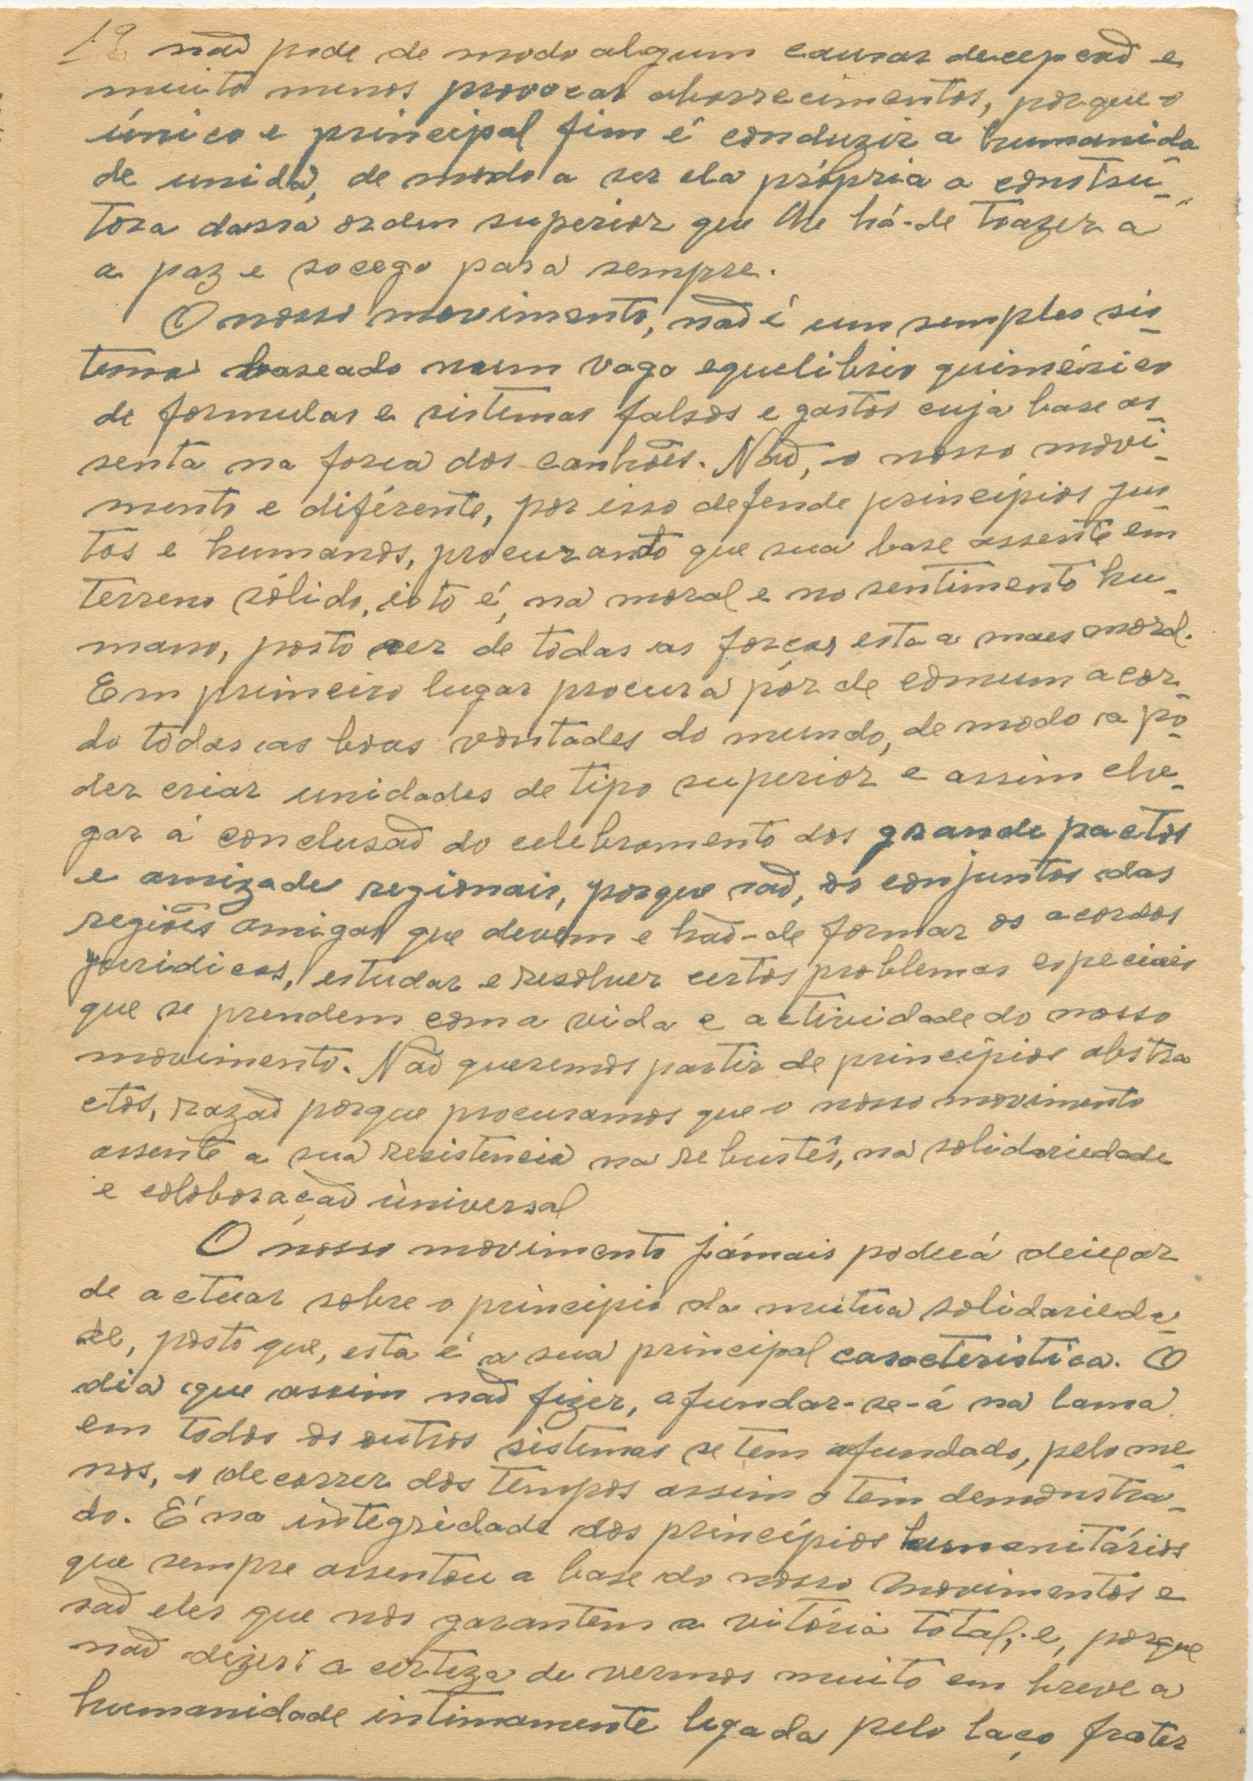 12 naõ pode de modo algum causar decepcaõ e
muito menos provocar aborrecimentos, porque o
único e principal fim é conduzir a humanida
de unida, de modo a ser ela própria a constru-
tora dassa ordem superior que lhe há-de trazer a
a paz e socego para sempre.
O nosso movimento, naõ é um semples sis-
tema baseado num vago equelibrio quimérico
de formulas e sistemas falsos e gastos cuja base as-
senta na forca dos canhoês. Naõ, o nosso movi-
mento e diférente, por isso defende principios jus
tos e humanos, procurando que sua base assente em
terreno sólido, isto é, na moral e no sentimento hu-
mano, posto ser de todas as forças esta a mais moral.
Em primeiro lugar procura pôr de comum acor-
do todas as boas vontades do mundo, de modo a po-
der criar unidades de tipo superior e assim che-
gar á conclusaõ do celebramento dos grande pactos
e amizade regionais, porque saõ, os conjuntos das
regioês amigas que devem e haõ-de formar os acordos
juridicos, estudar e resolver certos problemas especiais
que se prendem com a vida e actividade do nosso
movimento. Naõ queremos partir de principios abstra
ctos, razaõ porque procuramos que o nosso movimento
assente a sua resistencia na rebustês, na solidariedade
e coloboraçaõ universal
O nosso movimento jámais poderá deixar
de actuar sobre o principio da mutua solidarieda-
de, posto que, esta é a sua principal caracteristica. O
dia que assim naõ fizer, afundar-se-á na lama
em todos os outros sistemas se tem afundado, pelo me-
nos, o decorrer dos tempos assim o tem demonstra-
do. É na integridade dos princípios humanitários
que sempre assentou a base do nosso movimentos e
saõ eles que nos garantem a vitória total; e, porque
naõ dizer: a certeza de vermos muito em breve a
humanidade intimamente legada pelo laço frater